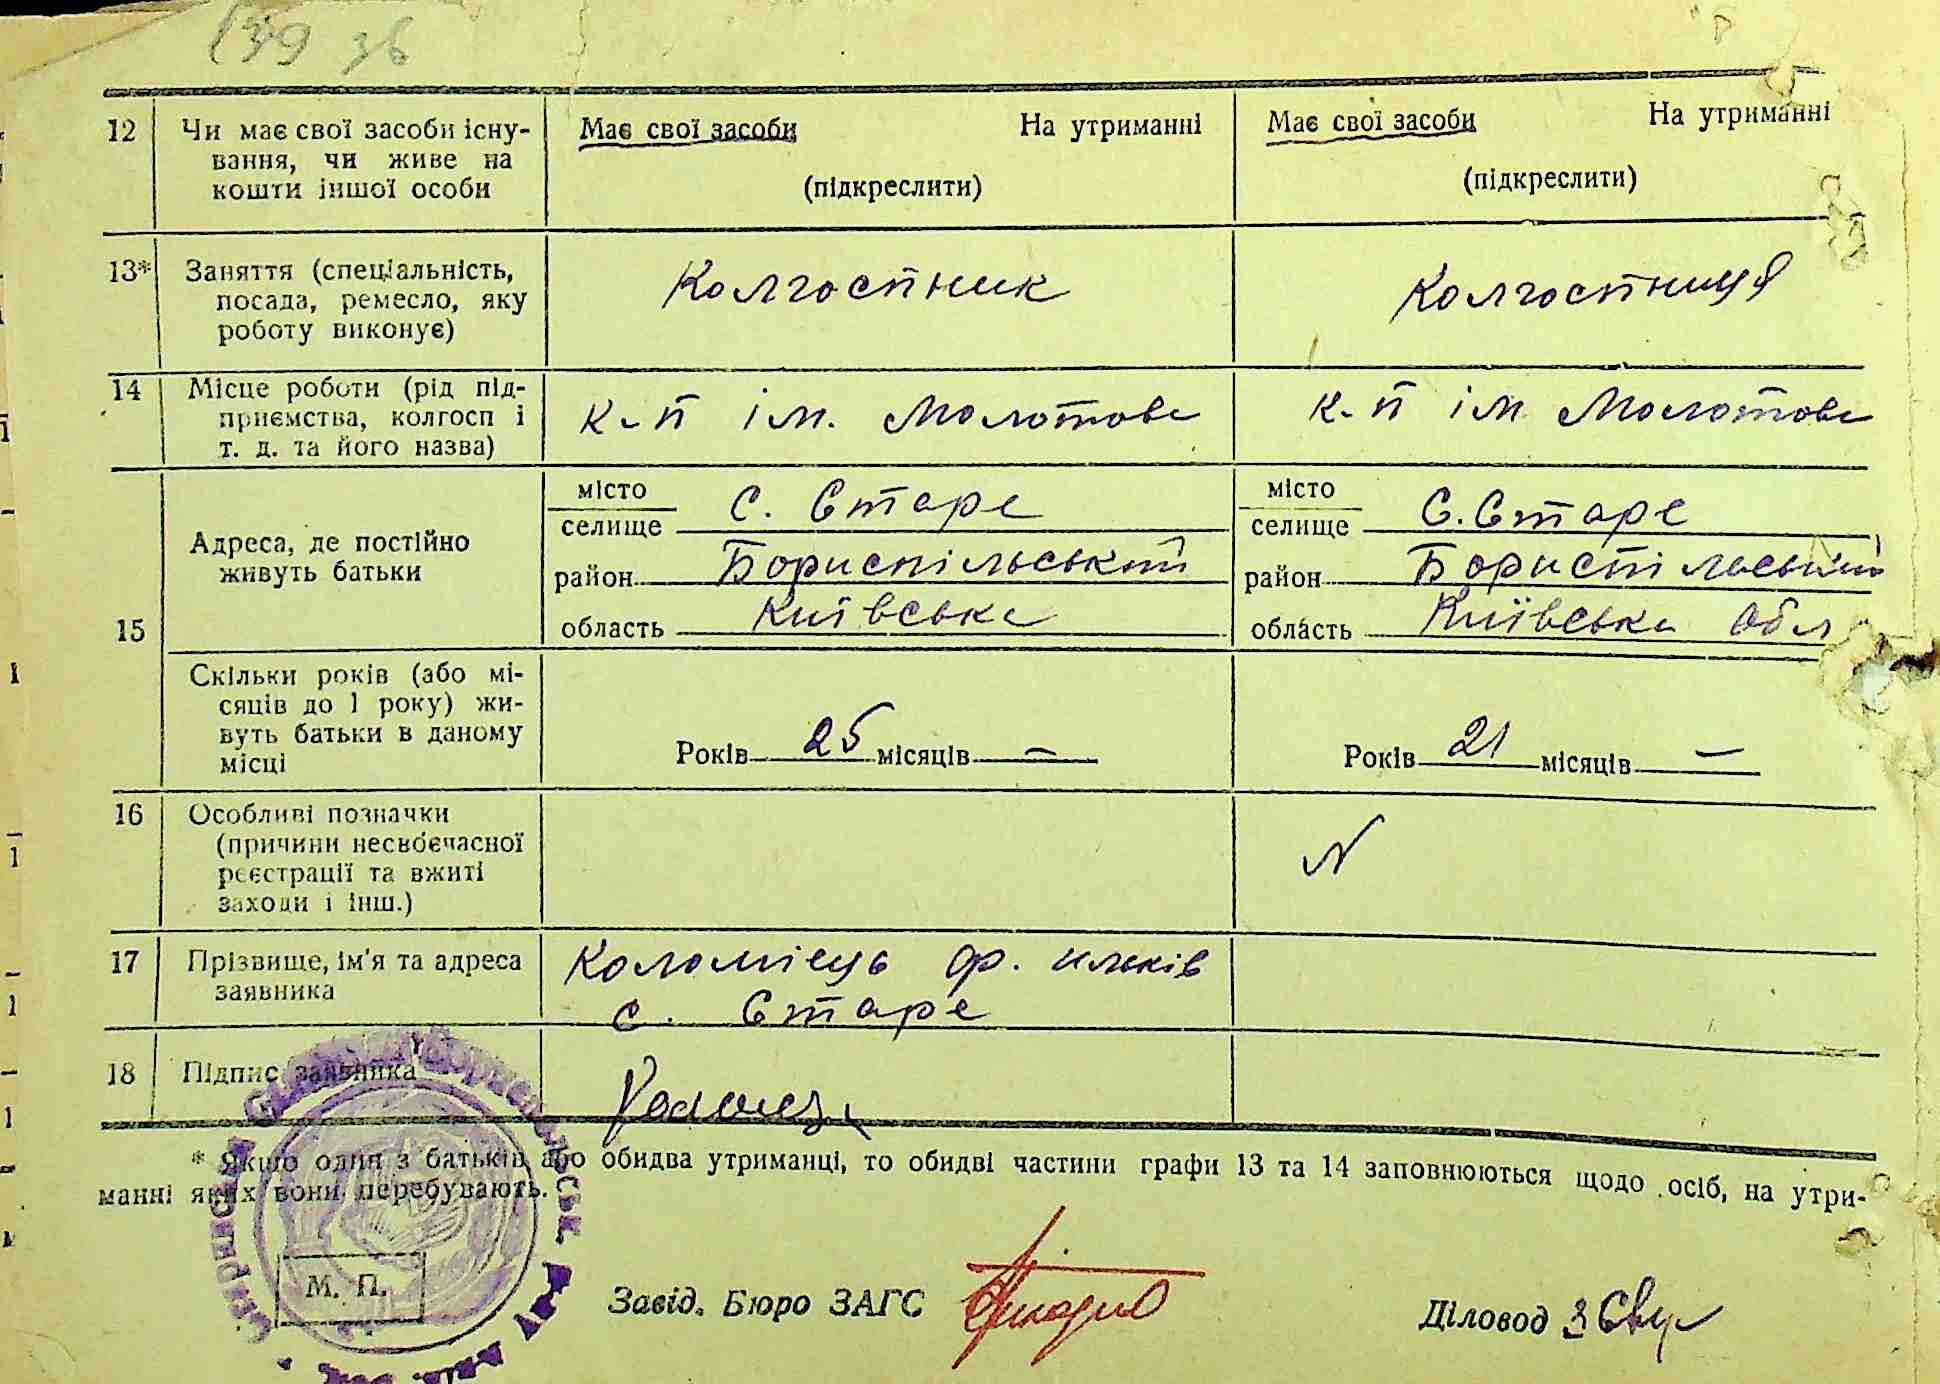 139 зв
12 Чи має свої засоби існу-
вання, чи живе на
кошти іншої особи
Має свої засоби На утриманні
(підкреслити)
Має свої засоби На утриманні
(підкреслити)
13* Заняття (спеціальність,
посада, ремесло, яку
роботу виконує)
Колгоспник
Колгоспниця
14 Місце роботи (рід під-
приємства, колгосп і
т. д. та його назва)
к-п ім. Молотова
к-п ім Молотова
15
Адреса, де постійно
живуть батьки
місто
селище с. Старе
район Бориспільський
область Київська
місто
селище с. Старе
район Бориспільський
область Київська обл
Скільки років (або мі-
сяців до 1 року) жи-
вуть батьки в даному
місці
Років 25 місяців —
Років 21 місяців —
16 Особливі позначки
(причини несвоєчасної
реєстрації та вжиті
заходи і інш.)
N
17 Прізвище, ім'я та адреса
заявника
Коломієць ф. ильків
с. Старе
18 Підпис заявника
* Якщо один з батьків або обидва утриманці, то обидві частини графи 13 та 14 заповнюються щодо осіб, на утри-
манні яких вони перебувають.
М. П.
Завід. Бюро ЗАГС
Діловод